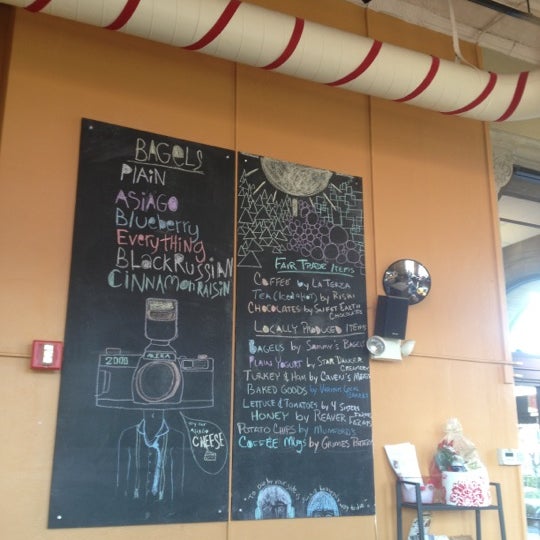 BAGELS
PLAIN
ASIAGO
Blueberry
EveryTHING
BLACKRUSSIAN
CINNAMON RAISIN
2000
try our
ASIAGO
CHEESE
FAIR TRADE ITEMS
COFFEE by LA TERZA
TEA (Iced or Hot) by RISHI
CHOCOLATES by SWEET EARTH
CHOCOLATES
LOCALLY PRODUCED ITEMS
BAGELS by SAMMY'S BAGELS
PLAIN YOGURT by STAR DANCER
CREAMERY
TURKEY & HAM by
BAKED GOODS by
LETTUCE & TOMATOES by 4 SISTERS
HONEY by REAVER
POTATO CHIPS by MUMFORD'S
COFFEE MUGS by GRIMES POTTERY